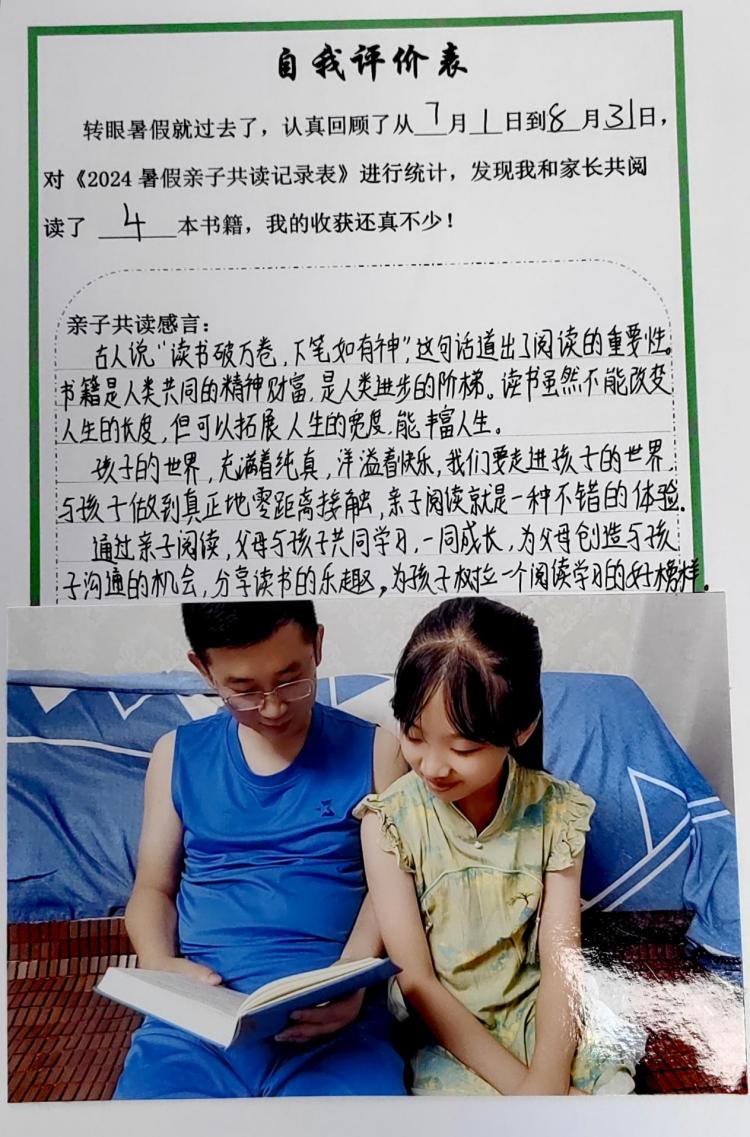 自我评价表
转眼暑假就过去了，认真回顾了从7月1日到8月31日，
对《2024暑假亲子共读记录表》进行统计，发现我和家长共阅
读了4本书籍，我的收获还真不少！
亲子共读感言：
古人说“读书破万卷，下笔如有神”，这句话道出了阅读的重要性。
书籍是人类共同的精神财富，是人类进步的阶梯。读书虽然不能改变
人生的长度，但可以拓展人生的宽度，能丰富人生。
孩子的世界，充满着纯真，洋溢着快乐，我们要走进孩子的世界，
与孩子做到真正地零距离接触，亲子阅读就是一种不错的体验.
通过亲子阅读，父母与孩子共同学习，一同成长，为父母创造与孩
子沟通的机会，分享读书的乐趣，为孩子树立一个阅读学习的好榜样。